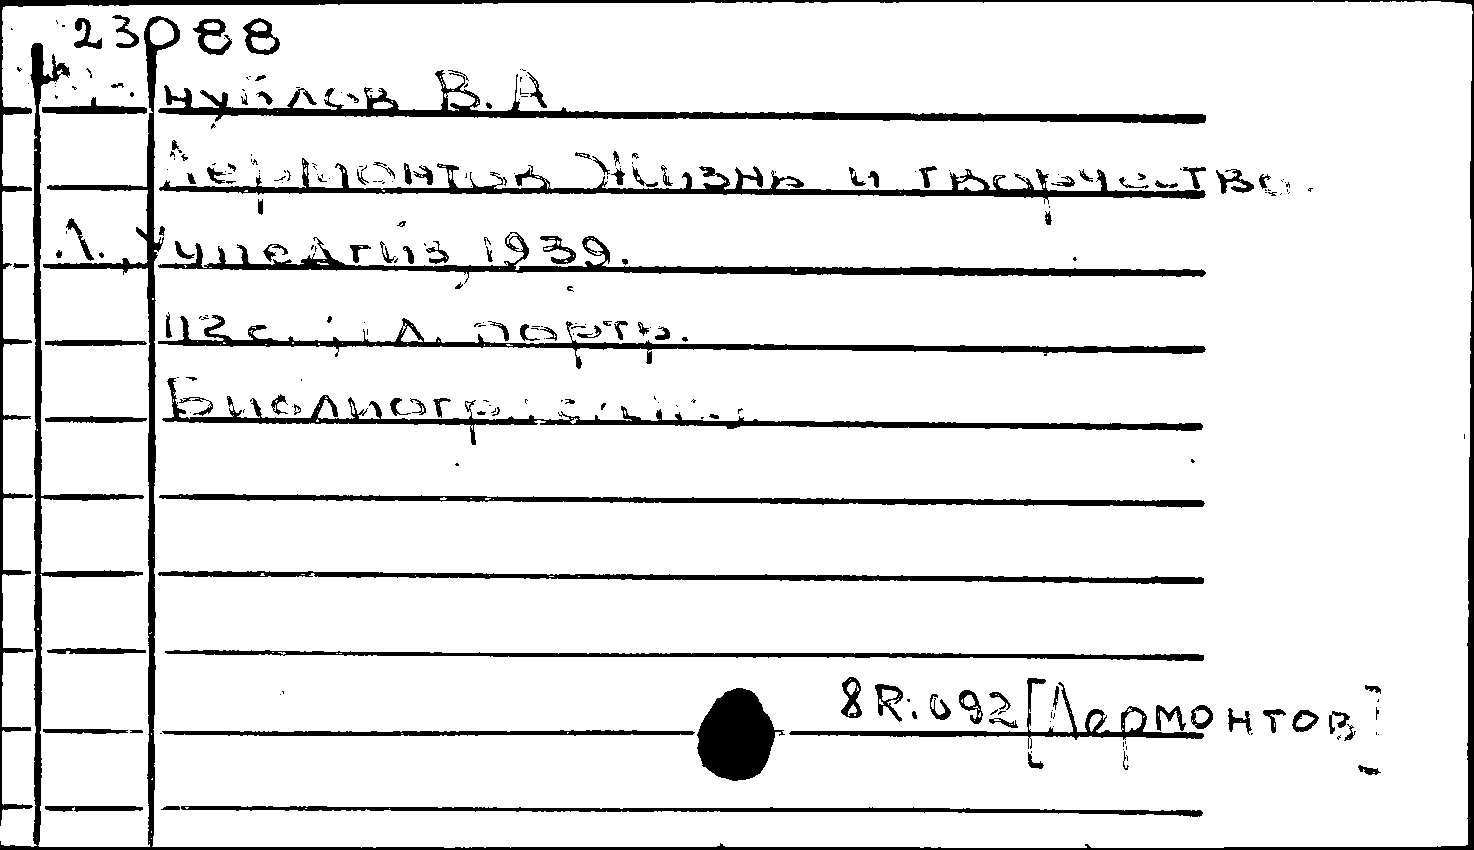 23088
Мануйлов В. А.
Лермонтов Жизнь и творчество.
Л., Учпедгиз, 1939.
113 с.; ил. портр.
8R:092[Лермонтов]